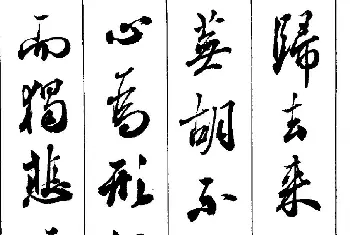 歸去来
蕪胡不
心為形
而獨悲